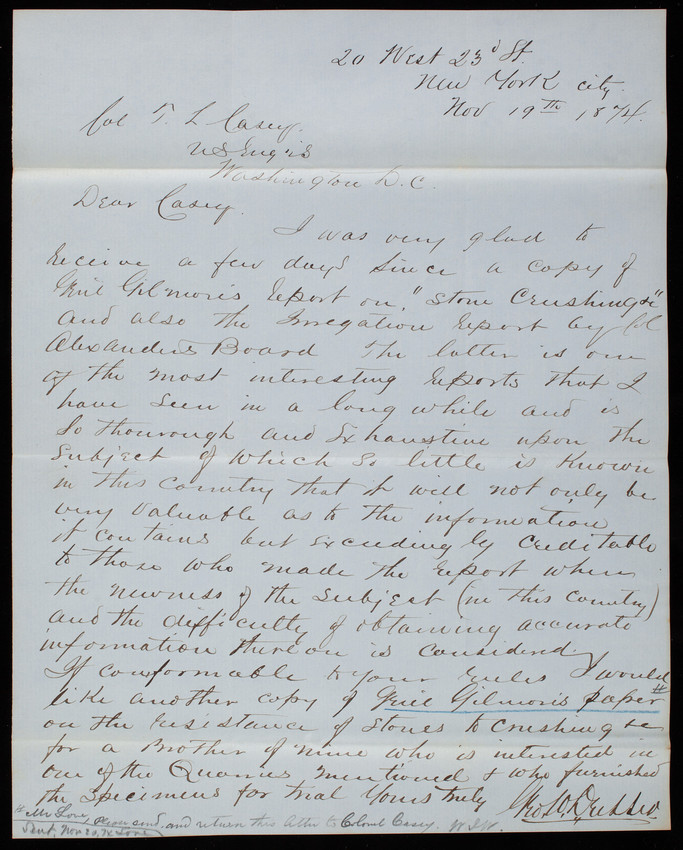 20 West 23d St.
New York city
Nov 19th 1874.
Col T. L Casey.
US Engrs
Washington D.C.
Dear Casey.
I was very glad to
receive a few days since a copy of
Genl Gilmoris report on "Stone Crushing &c"
and also the Irregation report by Col
Alexanders Board The latter is one
of the most interesting reports that I
have seen in a long while and is
so thourough and exhaustive upon the
subject of which so little is known
in this country that it will not only be
very valuable as to the information
it contains but exceedingly creditable
to those who made the report when
the newness of the subject (in this country)
and the difficulty of obtaining accurate
information thereon is considered
If conformable to your rules I would
like another copy of Genl Gilmoris paper #
on the resistance of Stones to Crushing &c
for a Brother of mine who is interested in
one of the Quarries mentioned & who furnished
the specimens for trial Yours truly
# Mr Love, please send, and return this letter to Colonel Casey.
Sent, Nov 20, 74 Love